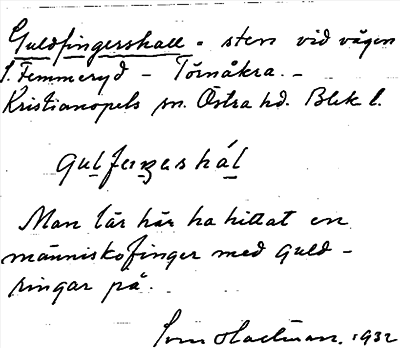 Guldfingershall - sten vid vägen
f. Femmeryd - Törnåkra. -
Kristianopels sn. Östra hd. Blek l.
gulfeŋeshál
Man lär här ha hittat en
människofinger med guld -
ringar på.
1932